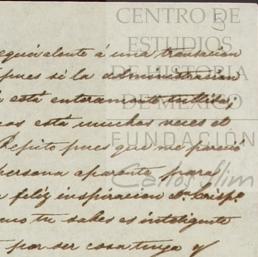 CENTRO DE
ESTUDIOS
DE HISTORIA
DE MEXICO
FUNDACIÓN
Carlos Slim
5
equivalente á una transacion
pues si la administracion
está enteramente tullida,
cas está muchas veces el
Repito pues que me parecio
persona aparente para
feliz inspiracion Dn. Crisp.
como tu sabes es inteligente
por ser cosa tuya y